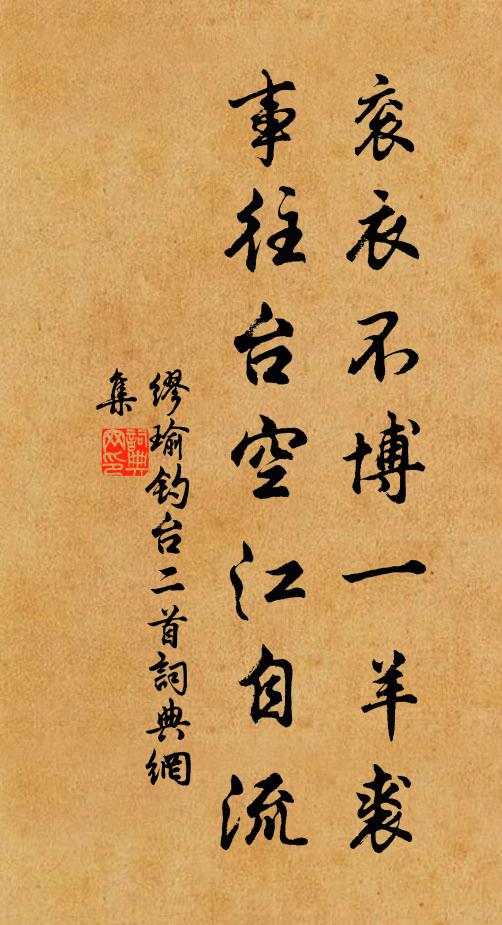 衮衣不博一羊裘
事往台空江自流
缪瑜钓台二首詞典網
集
詞典
网印